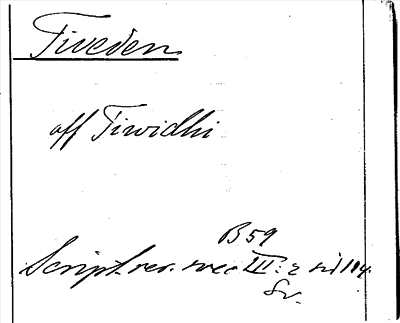 Tiveden
aff Tiwidhi
B 59
Script. rer. svec III: 2 sid 114.
Sv.